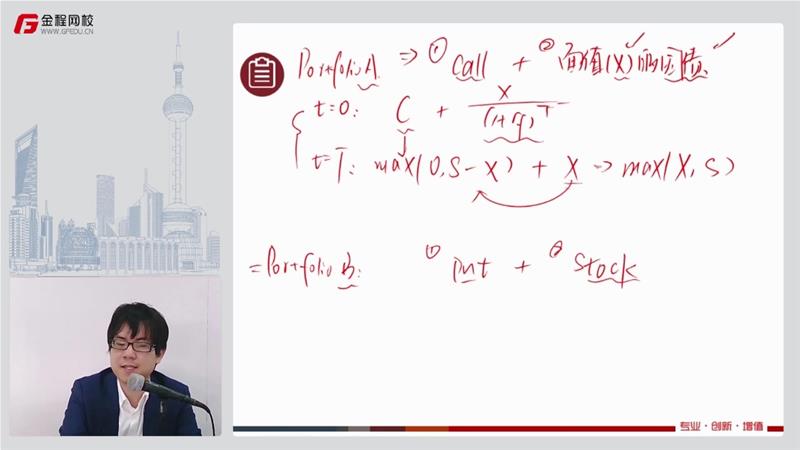 金程网校
WWW.GFEDU.CN
Portfolio A => ① call + ② 面值(X)的国债
t=0: C + X/(1+rf)^T
t=T: max(0,S-X) + X → max(X,S)
=Portfolio B: ① put + ② stock
专业·创新·增值